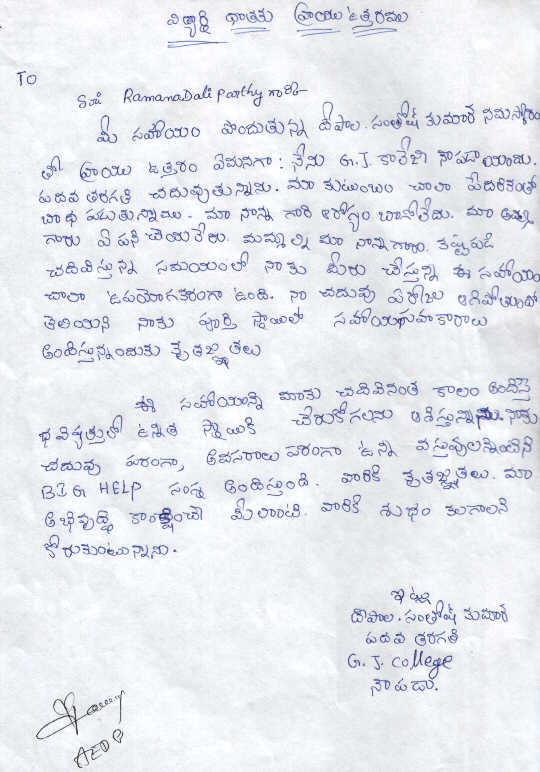 విద్యార్థి దాతకు వ్రాయు ఉత్తరము
TO
Sri RamanaDali Parthy గారికి
మీ సహాయం పొందుతున్న దీపాల. సంతోష్ కుమార్ నమస్కారం
తో వ్రాయు ఉత్తరం ఏమనగా: నేను G.J. కాలేజి నాపడాయందు.
పదవ తరగతి చదువుతున్నాను. మా కుటుంబం చాలా పేదరికంతో
బాధ పడుతున్నాము. మా నాన్న గారి ఆరోగ్యం బాగోలేదు. మా అమ్మ
గారు ఏ పని చెయలేరు. మమ్మల్ని మా నాన్నగారు. కష్టపడి
చదివిస్తున్న సమయంలో నాకు మీరు చేస్తున్న ఈ సహాయం
చాలా ఉపయోగకరంగా ఉంది. నా చదువు ఏరోజు ఆగిపోతుందో
తెలియని నాకు పూర్తి స్థాయిలో సహాయసహకారాలు
అందిస్తున్నందుకు కృతజ్ఞతలు
ఈ సహాయాన్ని మాకు చదివినంత కాలం అందిస్తే
భవిష్యత్తులో ఉన్నత స్థాయికి చేరుకోగలను ఆశిస్తున్నాను. నాకు
చదువు పరంగా, అవసరాలు పరంగా ఉన్ని వస్తువులన్నియు
BIG HELP సంస్థ అందిస్తుంది. వారికి కృతజ్ఞతలు. మా
అభివృద్ధి కాంక్షించే మీలాంటి. వారికి శుభం కలగాలని
కోరుకుంటున్నాను.
ఇట్లు
దీపాల. సంతోష్ కుమార్
పదవ తరగతి
G. J. College
నాపడు.